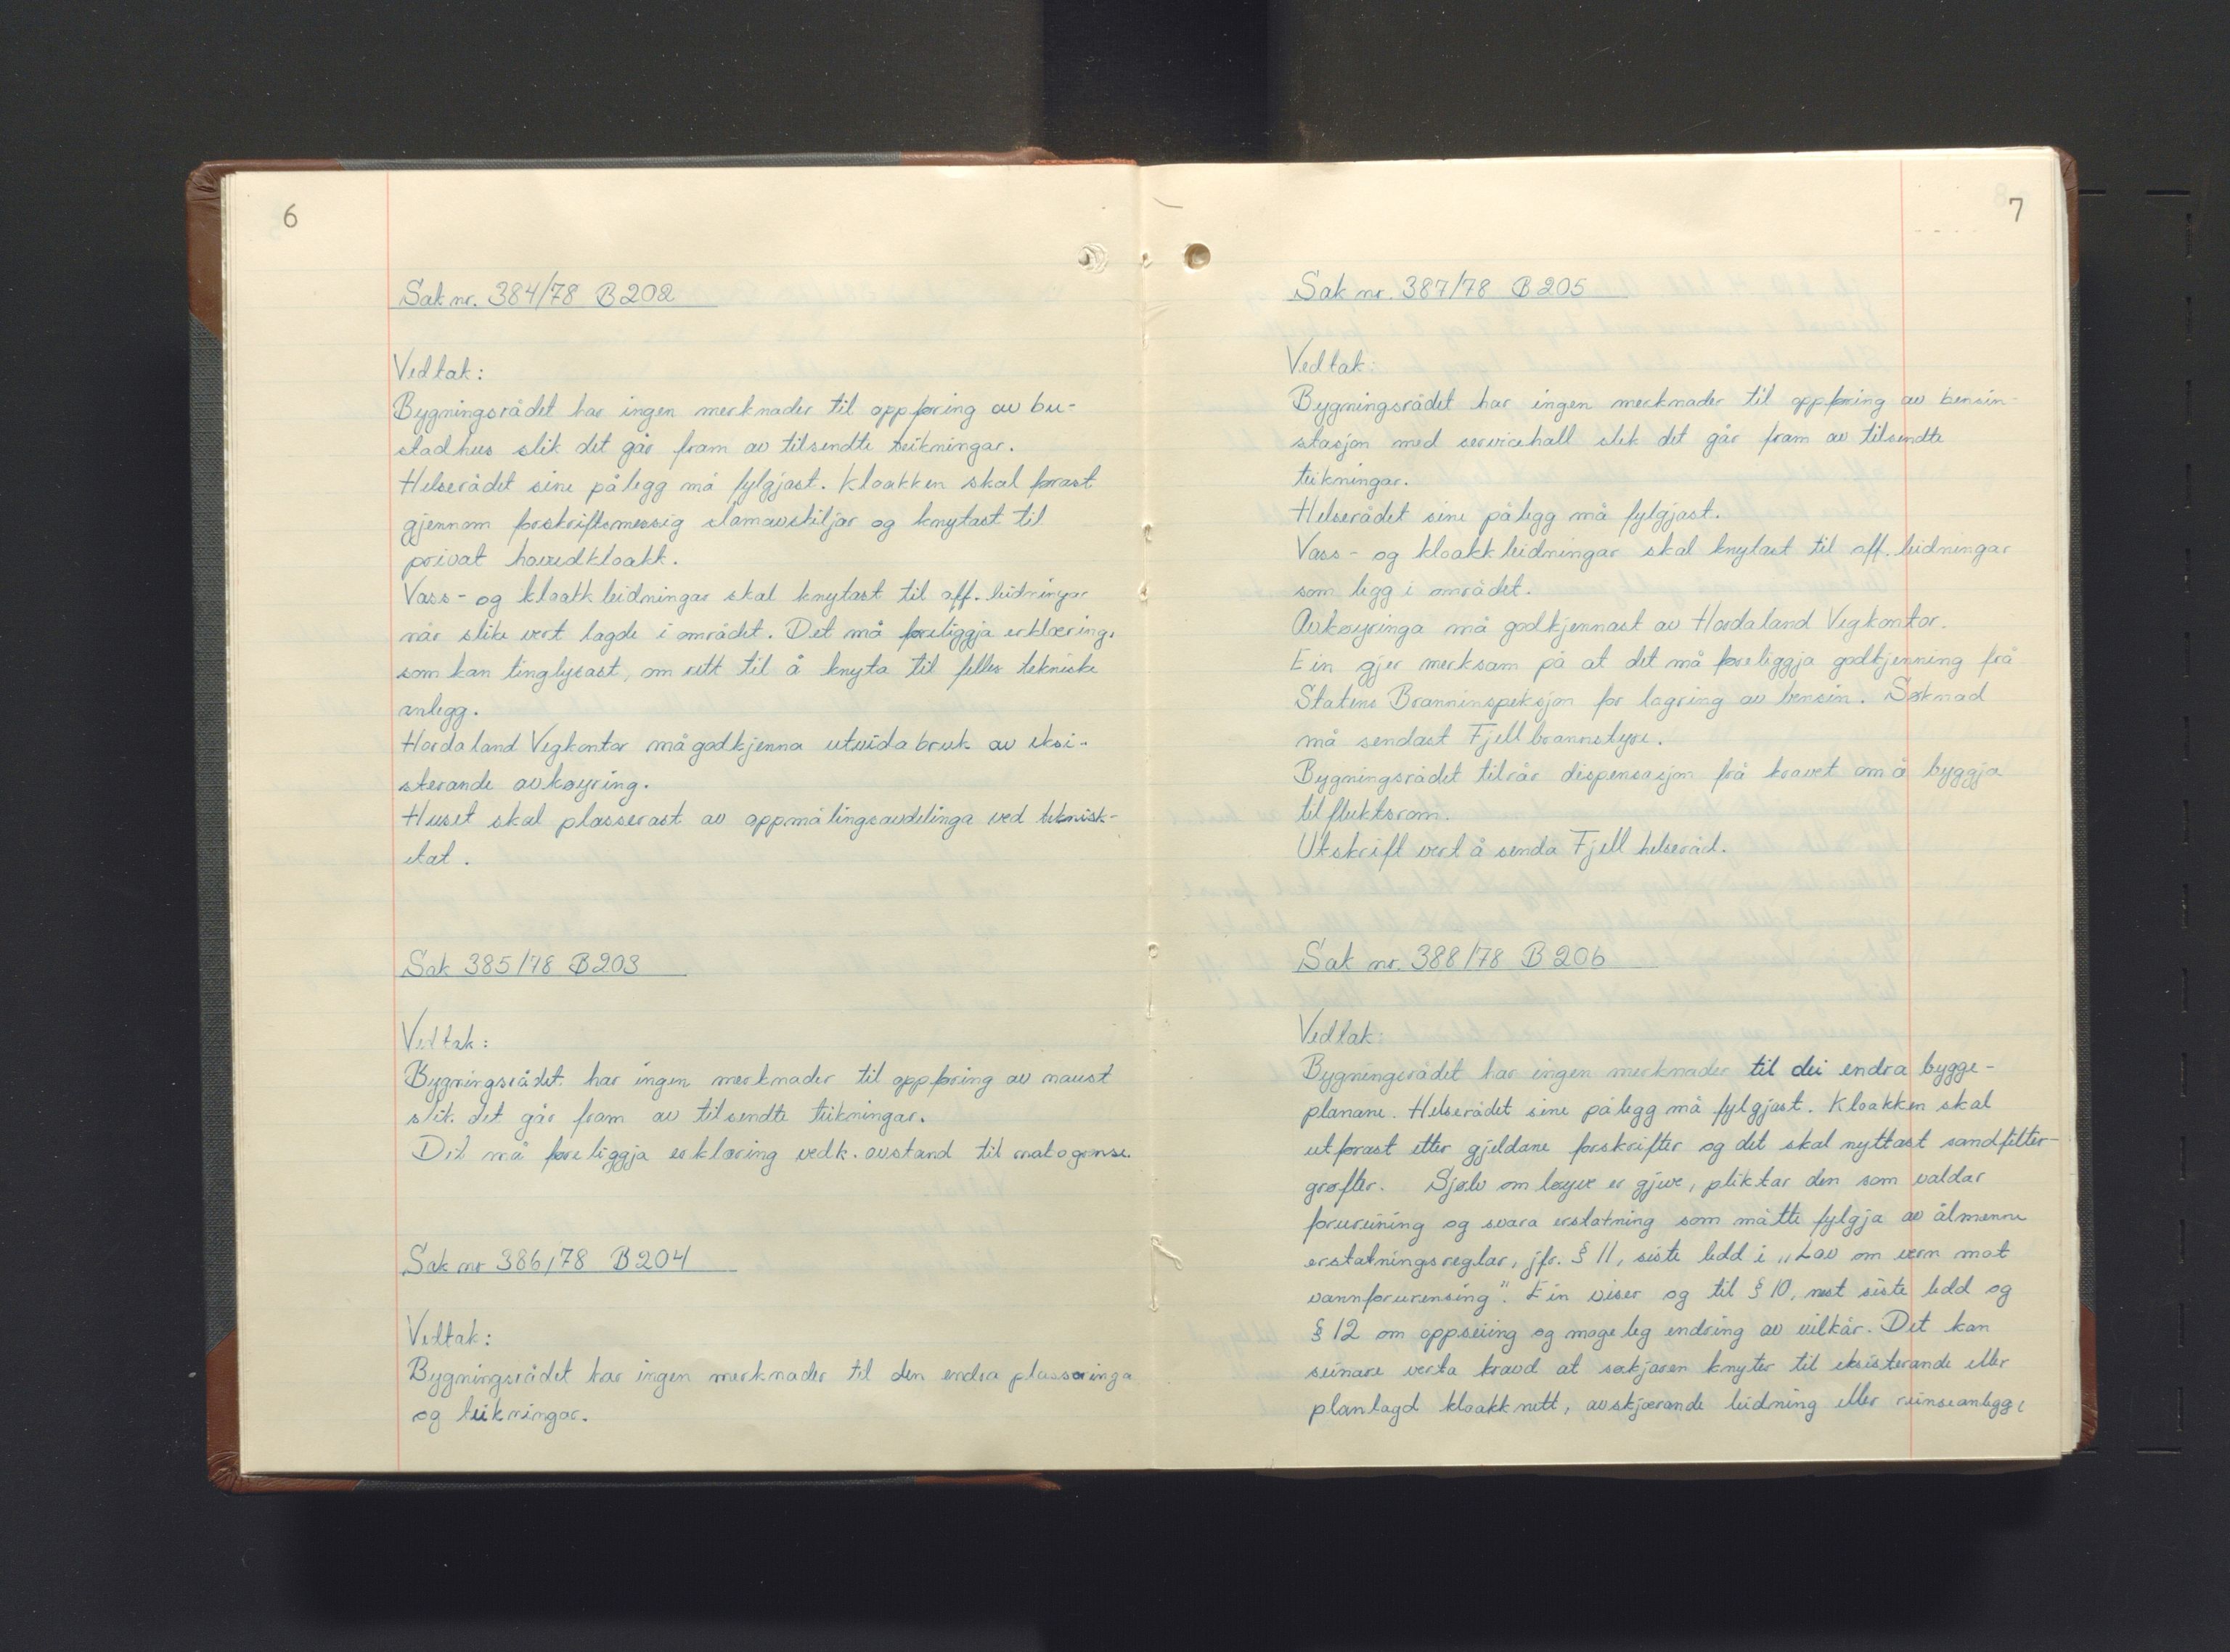 6
Sak nr. 384/78 B 202
Vedtak:
Bygningsrådet har ingen merknader til oppføring av bu-
stadhus slik det går fram av tilsendte teikningar.
Helserådet sine pålegg må fylgjast. Kloakken skal førast
gjennom forskriftsmessig slamavskiljar og knytast til
privat hovudkloakk.
Vass- og kloakkleidningar skal knytast til off. leidningar
når slike vert lagde i området. Det må føreliggja erklæring,
som kan tinglysast, om rett til å knyta til felles tekniske
anlegg.
Hordaland Vegkontor må godkjenna utvida bruk av eksi-
sterande avkøyring.
Huset skal plasserast av oppmålingsavdelinga ved teknisk-
etat.
Sak 385/78 B 203
Vedtak:
Bygningsrådet har ingen merknader til oppføring av naust
slik det går fram av tilsendte teikningar.
Det må føreliggja erklæring vedk. avstand til nabogrense.
Sak nr 386/78 B 204
Vedtak:
Bygningsrådet har ingen merknader til den endra plasseringa
og teikningar.
7
Sak nr. 387/78 B 205
Vedtak:
Bygningsrådet har ingen merknader til oppføring av bensin-
stasjon med servicehall slik det går fram av tilsendte
teikningar.
Helserådet sine pålegg må fylgjast.
Vass- og kloakkleidningar skal knytast til off. leidningar
som ligg i området.
Avkøyringa må godkjennast av Hordaland Vegkontor.
Ein gjer merksam på at det må føreliggja godkjenning frå
Statens Branninspeksjon for lagring av bensin. Søknad
må sendast Fjell brannstyre.
Bygningsrådet tilrår dispensasjon frå kravet om å byggja
tilfluktsrom.
Utskrift vert å senda Fjell helseråd.
Sak nr. 388/78 B 206
Vedtak:
Bygningsrådet har ingen merknader til dei endra bygge-
planane. Helserådet sine pålegg må fylgjast. Kloakken skal
utførast etter gjeldane forskrifter og det skal nyttast sandfilter-
grøfter. Sjølv om løyve er gjeve, pliktar den som valdar
forureining og svara erstatning som måtte fylgja av ålmenne
erstatningsreglar, jfr. § 11, siste ledd i „Lov om vern mot
vannforurensing". Ein viser og til § 10, nest siste ledd og
§ 12 om oppseiing og mogeleg endring av vilkår. Det kan
seinare verta kravd at søkjaren knyter til eksisterande eller
planlagd kloakknett, avskjærande leidning eller reinseanlegg,